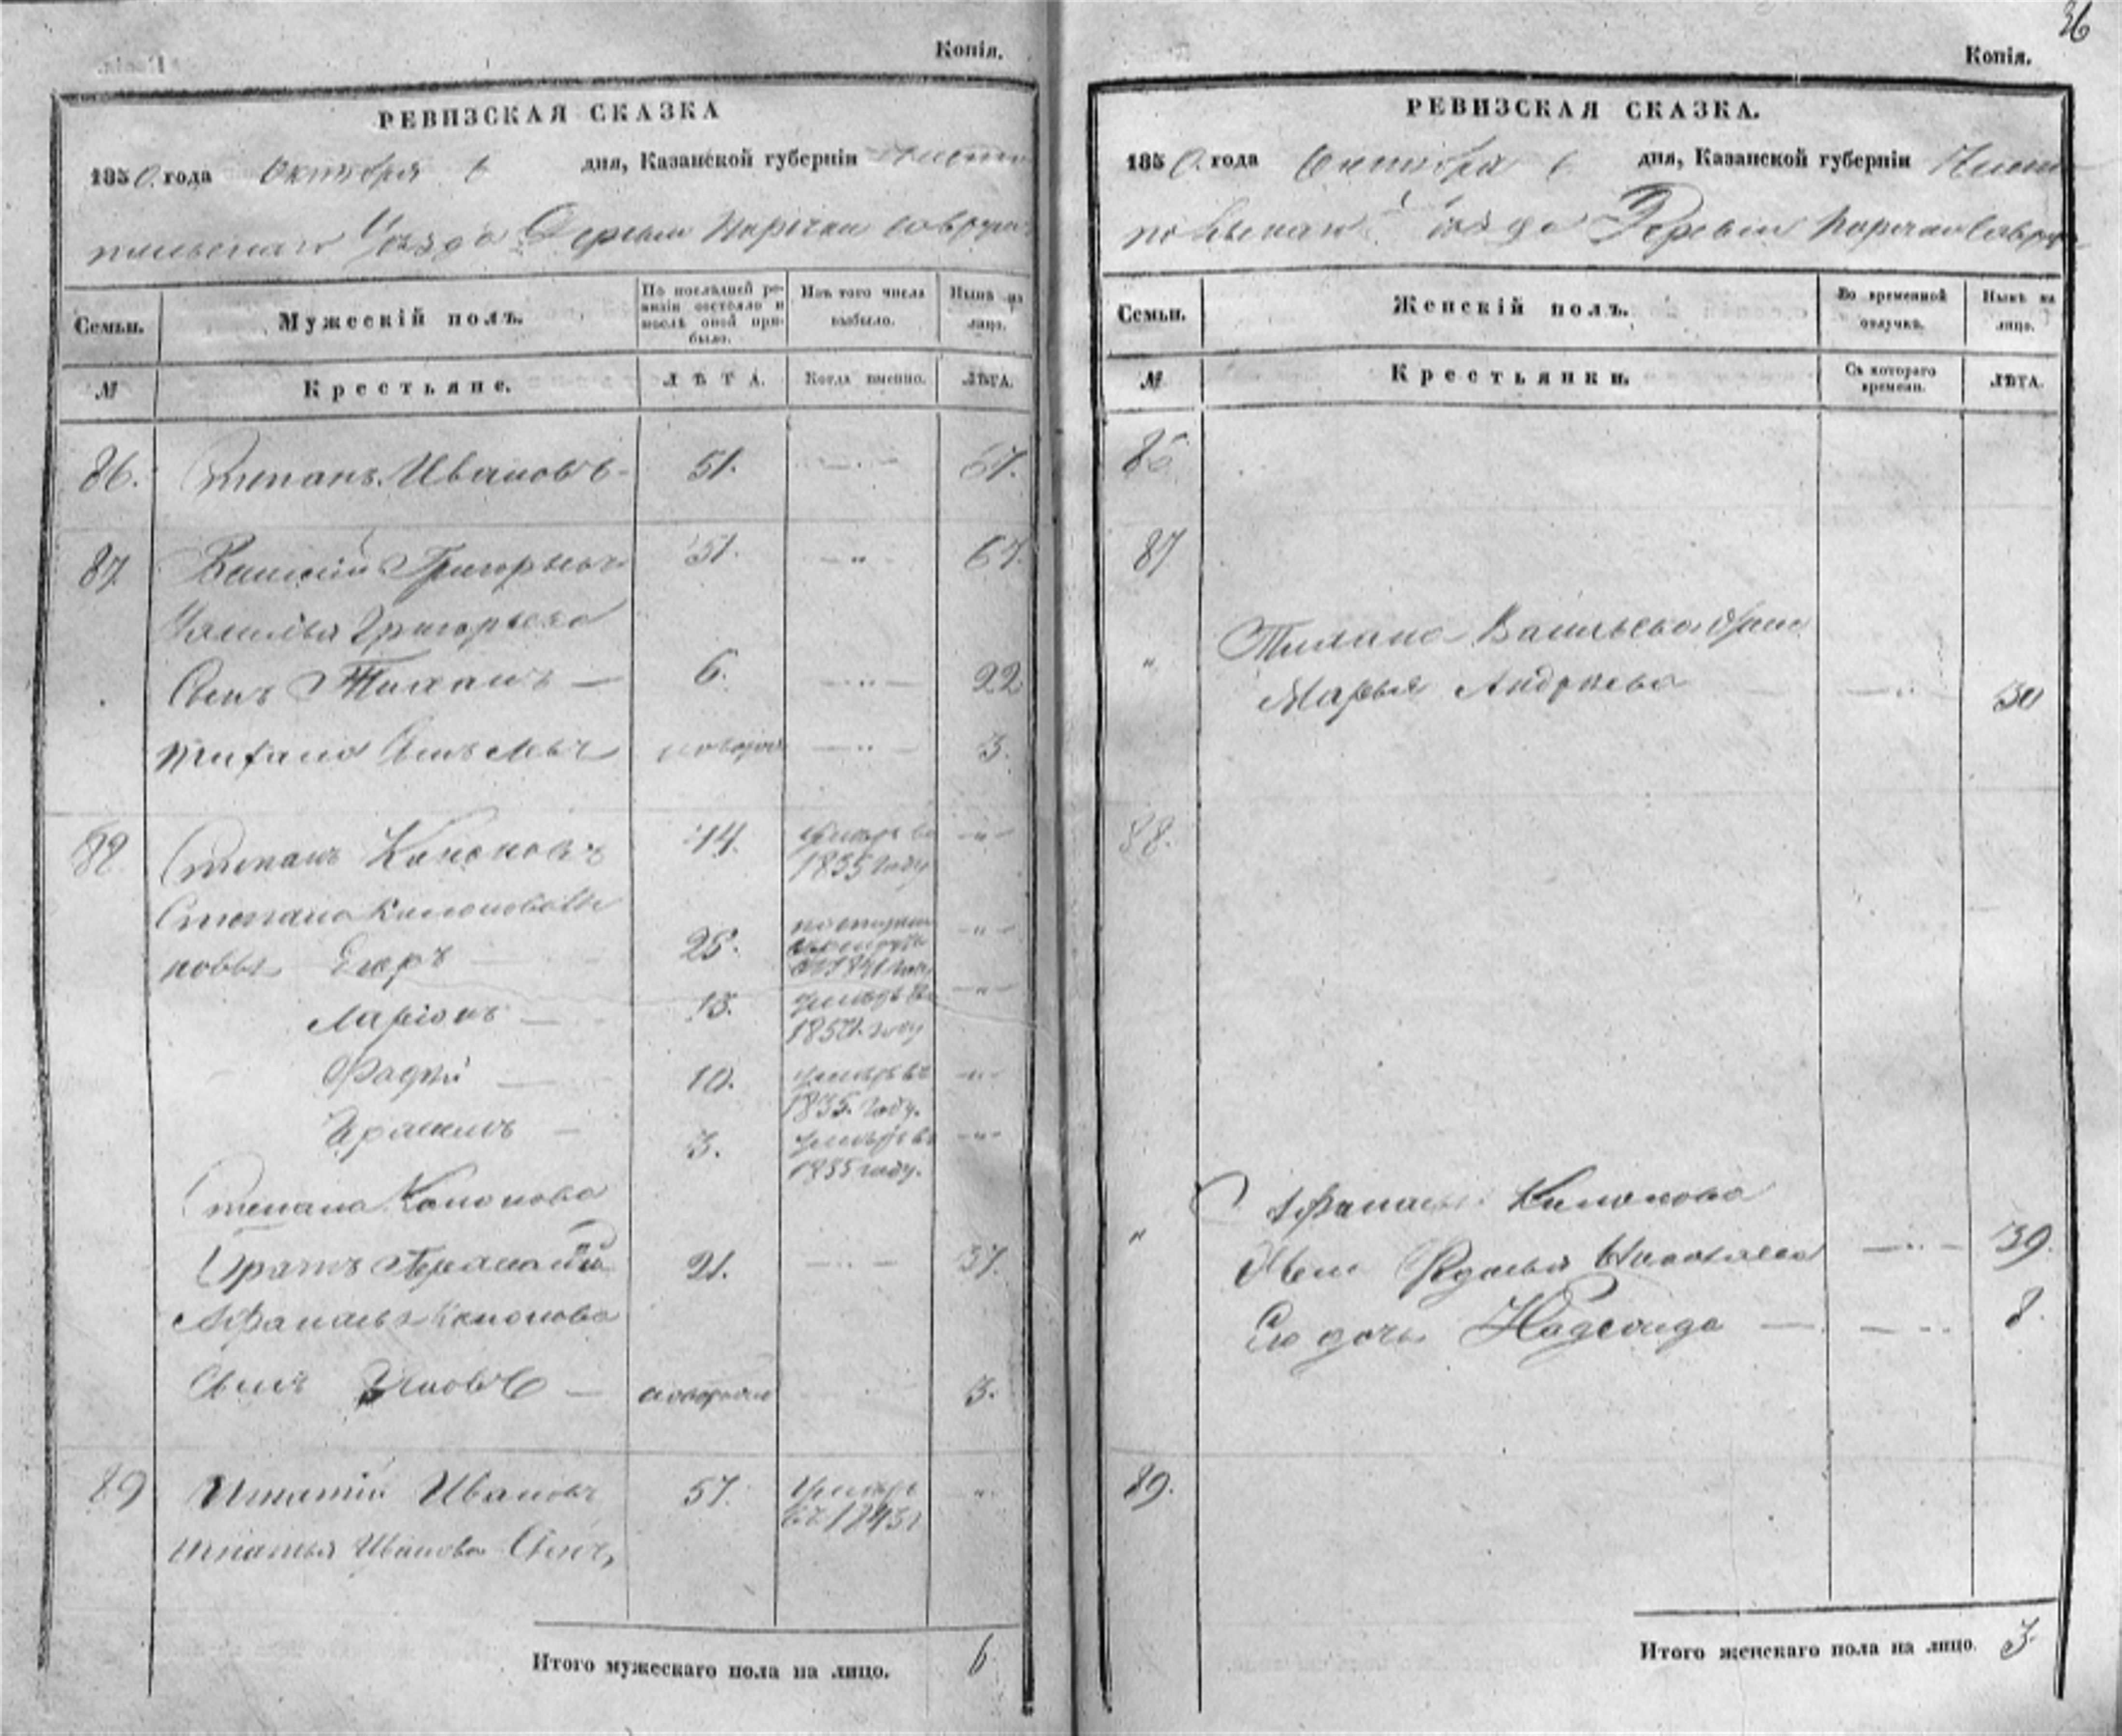 Копія.
РЕВИЗСКАЯ СКАЗКА
1850 года Октября 6 дня, Казанской губерніи Чисто
польскаго Уѣзда Деревни
Семьи.
Мужескій полъ.
По послѣдней ре-
визіи состояло и
послѣ оной при-
было.
Изъ того числа
выбыло.
Нынѣ на
лицо.
№
Крестьяне.
ЛѢТА.
Когда именно.
ЛѢТА.
86. Степанъ Ивановъ 51. — " — 67.
87. Василій Григорьевъ 51. — " — 67.
Василья Григорьева
Сынъ Тиханъ — 6. — " — 22
Тихана Сынъ новорож — " — 3.
88. Степанъ Кононовъ 44. умеръ въ — " —
1835 году
Степана Кононова Сы
новья Егоръ 25. — " —
1841 года
Ларіонъ — 13. умеръ въ — " —
1850 году
Фадѣй — 10. умеръ въ — " —
1835. году.
— 3. умеръ въ — " —
1835 году.
Степана Кононова
Братъ 21. — " — 37.
Афанасья Кононова
Сынъ — новорож 3.
89 Игнатій Ивановъ 57. умеръ "
въ 1843 г
Игнатья Иванова Сынъ,
Итого мужескаго пола на лицо. 6
36
Копія.
РЕВИЗСКАЯ СКАЗКА.
1850. года Октября 6 дня, Казанской губерніи Чисто
польскаго Уѣзда Деревни
Семьи.
Женскій полъ.
Во временной
отлучкѣ.
Нынѣ на
лицо.
№
Крестьянки.
Съ котораго
времени.
ЛѢТА.
86
87
Тихана Васильева жена
" Марья Андреева — " — 30
88.
Афанасья Кононова
" Жена Николаева — " — 39.
Ея дочь Надежда — — " 8.
89.
Итого женскаго пола на лицо 3